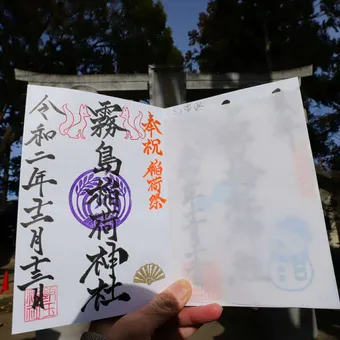 奉祝 稲荷祭
霧島稲荷神社
令和二年十二月十二日